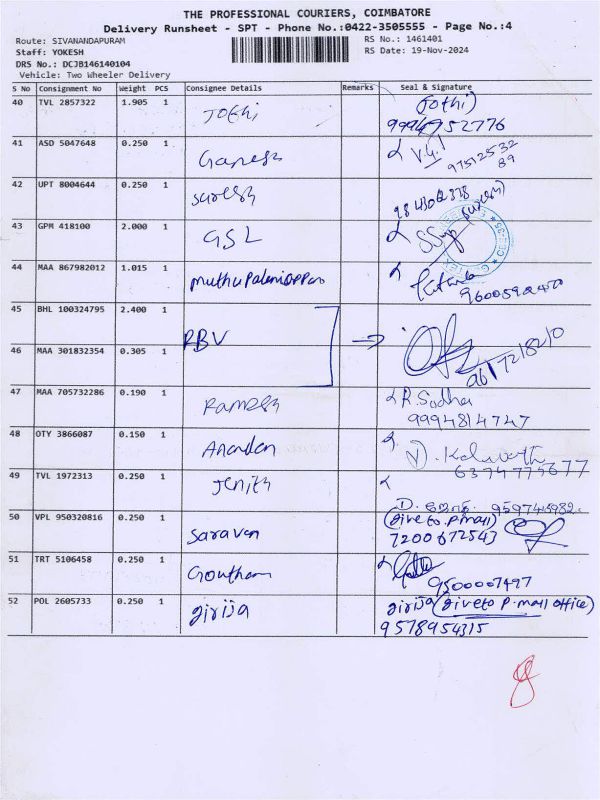 THE PROFESSIONAL COURIERS, COIMBATORE
Delivery Runsheet - SPT - Phone No.:0422-3505555 - Page No.:4
Route: SIVANANDAPURAM
RS No.: 1461401
Staff: YOKESH
RS Date: 19-Nov-2024
DRS No.: DCJB146140104
Vehicle: Two Wheeler Delivery
S No Consignment No Weight PCS Consignee Details Remarks Seal & Signature
40 TVL 2857322 1.905 1 Jothi (Jothi)
9994752776
41 ASD 5047648 0.250 1 Ganesh
9751253289
42 UPT 8004644 0.250 1 Suresh
43 GPM 418100 2.000 1 GSL
44 MAA 867982012 1.015 1 Muthupalaniappan
45 BHL 100324795 2.400 1
RBV
46 MAA 301832354 0.305 1
9617218210
47 MAA 705732286 0.190 1 Ramesh R. Sudha
9994814747
48 OTY 3866087 0.150 1 Anandan
6374775677
49 TVL 1972313 0.250 1 Jenith
D. ஜெனித் 9597445982
50 VPL 950320816 0.250 1 Saravan (Give to P.mall)
7200672543
51 TRT 5106458 0.250 1 Goutham
9500007497
52 POL 2605733 0.250 1 Girija Girija (Give to P.mall office)
9578954315